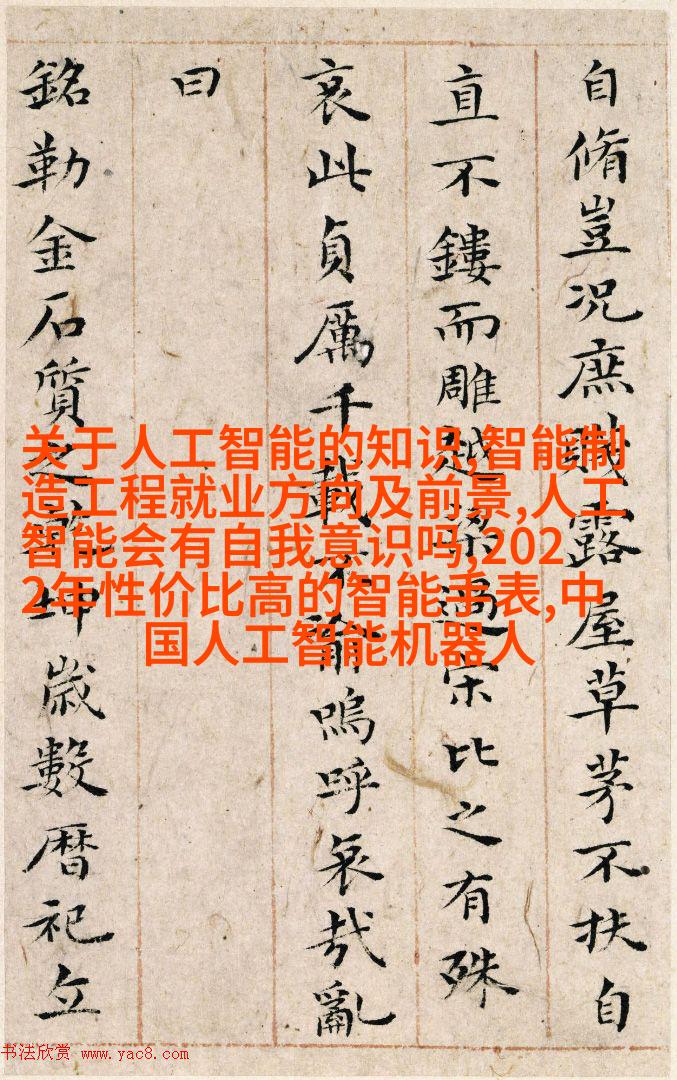 自脩豈况庶賤露屋草茅不扶自
直不鏤而雕越梁過宋比之有殊
哀此貞厲千載不渝嗚呼哀哉亂
曰
銘勒金石質之乾坤歲數暦祀立
关于人工智能的知识,智能制
造工程就业方向及前景,人工
智能会有自我意识吗,202
2年性价比高的智能手表,中
国人工智能机器人
书法欣赏 www.yac8.com